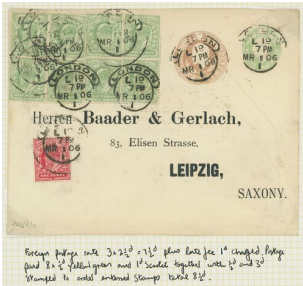 LONDON
L 19
7 PM
MR 1 06
LONDON
LONDON
L 19
7 PM
MR 1 06
Herren Baader & Gerlach,
83, Elisen Strasse,
LEIPZIG,
SAXONY.
Foreign Postage rate 3 x 2½d = 7½d plus late fee 1d charged, Postage
paid 8 x ½d yellow green and 1d Scarlet together with ½d and 3d
Stamped to order embossed Stamps total 8½d